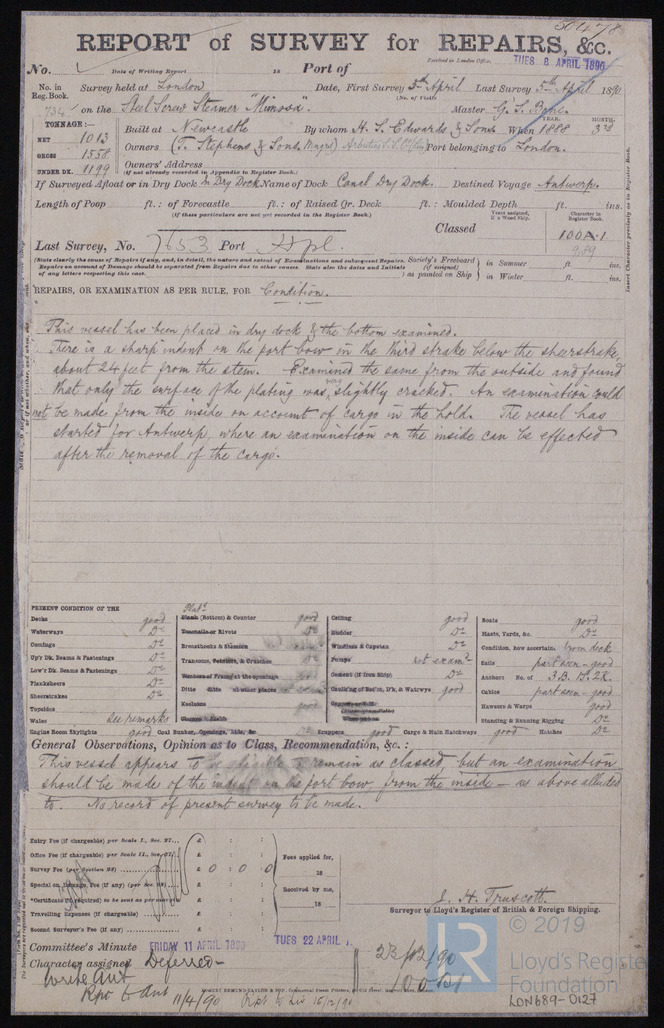 50478
REPORT of SURVEY for REPAIRS, &c.
Received in London Office, TUES 8 APRIL 1890
No. Date of Writing Report 18 Port of
No. in Reg. Book. Survey held at London Date, First Survey 5th April Last Survey 5th April 1890
(No. of Visits
734 on the Steel Screw Steamer "Mimosa" Master G. S.
TONNAGE:— YEAR. MONTH.
NET 1013 Built at Newcastle By whom H. S. Edwards & Sons When 1888 3rd
GROSS 1558 Owners (T. Stephens & Sons Port belonging to London.
UNDER DK. 1199 Owners' Address
(if not already recorded in Appendix to Register Book.)
If Surveyed Afloat or in Dry Dock In Dry Dock Name of Dock Canal Dry Dock. Destined Voyage Antwerp.
Length of Poop ft. : of Forecastle ft. : of Raised Qr. Deck ft. : Moulded Depth ft. ins.
(If these particulars are not yet recorded in the Register Book.)
Years assigned, if a Wood Ship. Character in Register Book.
Classed 100A.1
9,89
Last Survey, No. 7653 Port Hpl.
(State clearly the cause of Repairs if any, and, in detail, the nature and extent of Examinations and subsequent Repairs.
Repairs on account of Damage should be separated from Repairs due to other causes. State also the dates and Initials
of any letters respecting this case.
Society's Freeboard (if assigned) as painted on Ship
in Summer ft. ins.
in Winter ft. ins.
REPAIRS, OR EXAMINATION AS PER RULE, FOR Condition.
This vessel has been placed in dry dock & the bottom examined.
There is a sharp indent on the port bow in the third strake below the sheerstrake,
about 24 feet from the stem. Examined the same from the outside and found
that only the surface of the plating was very slightly cracked. An examination could
not be made from the inside on account of cargo in the hold. The vessel has
started for Antwerp, where an examination on the inside can be effected
after the removal of the cargo.
PRESENT CONDITION OF THE
Decks good
Waterways Do
Comings Do
Up'r Dk. Beams & Fastenings Do
Low'r Dk. Beams & Fastenings Do
Planksheers Do
Sheerstrakes Do
Topsides
Wales see remarks
Engine Room Skylights good
Plat'g
Plank (Bottom) & Counter good
Treenails or Rivets Do
Breasthooks & Stemson
Transoms, Pointers, & Crutches
Timbers of Frame at the openings
Ditto ditto at other places
Keelsons good
Coal Bunker, Openings, Lids, &c Do
Ceiling good
Rudder Do
Windlass & Capstan Do
Pumps not exam'd
Cement (if Iron Ship) Do
Caulking of Bot'm, D'k, & Watrwys good
Scuppers good Cargo & Main Hatchways good
Boats good
Masts, Yards, &c. Do
Condition, how ascertain. from deck
Sails part seen - good
Anchors No. of 3.B. 1S. 2K.
Cables part seen - good
Hawsers & Warps good
Standing & Running Rigging Do
Hatches Do
General Observations, Opinion as to Class, Recommendation, &c. :
This vessel appears to be eligible to remain as classed, but an examination
should be made of the indent on the port bow, from the inside — as above alluded
to. No record of present survey to be made.
Entry Fee (if chargeable) per Scale I., Sec. 27... £ : :
Office Fee (if chargeable) per Scale II., Sec. 27... £ : :
Survey Fee (per Section 28) £ 0 : 0 : 0
Special or Damage Fee (if any) (per Sec. 28) £ : :
*Certificate (if required) to be sent as per margin
Travelling Expenses (if chargeable) £ : :
Second Surveyor's Fee (if any) £ : :
Fees applied for,
18
Received by me,
18
J. H. Truscott.
Surveyor to Lloyd's Register of British & Foreign Shipping.
Committee's Minute FRIDAY 11 APRIL 1890 TUES 22 APRIL
Character assigned Deferred —
Write Ant
Rpt to Ant 11/4/90 Rpt to Liv 16/12/90
© 2019
LR
Lloyd's Register
Foundation
LON689-0127